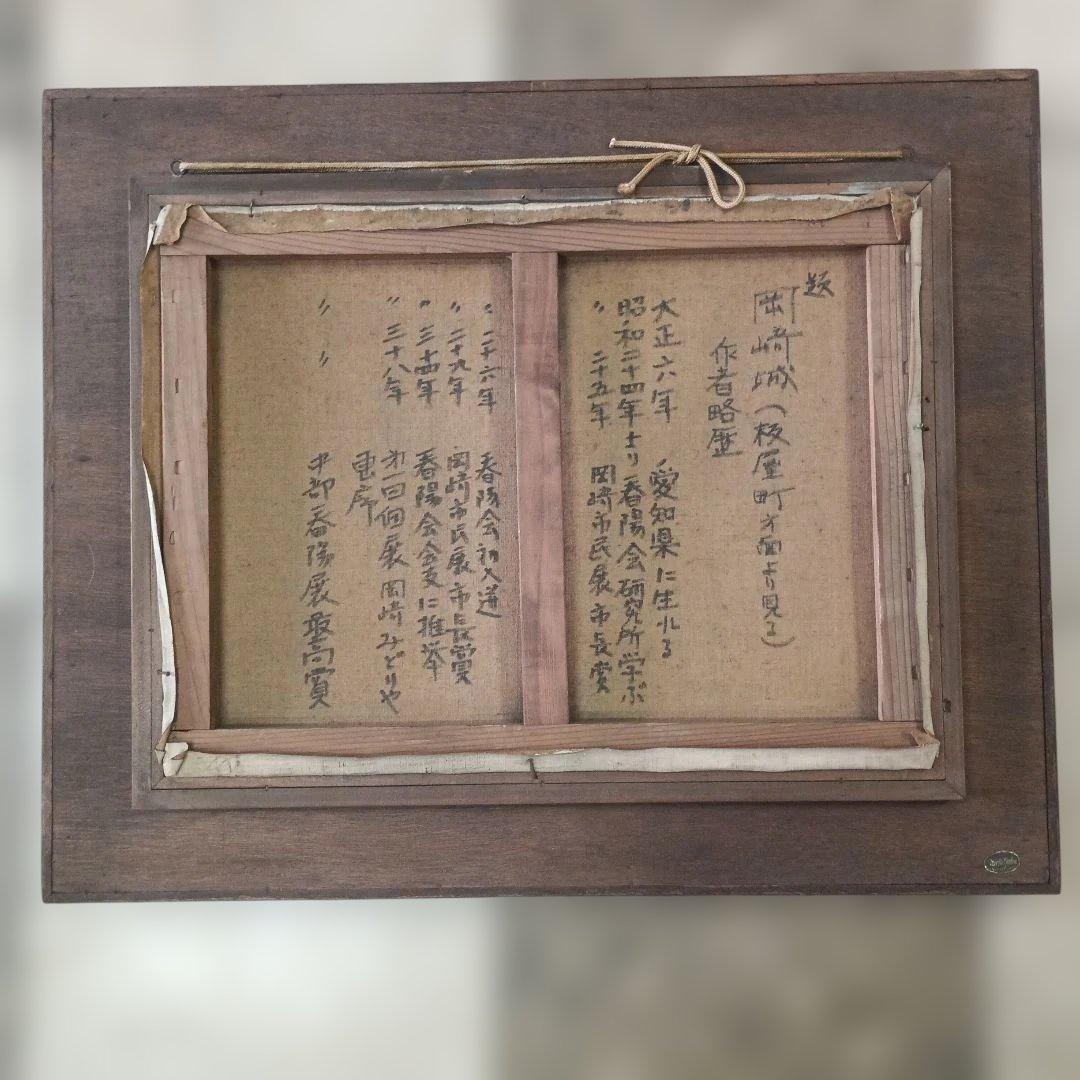 題
岡崎城（板屋町方面より見る）
作者略歴
大正六年 愛知県に生れる
昭和二十四年より春陽会研究所学ぶ
〃 二十五年 岡崎市民展市長賞
〃 二十六年 春陽会初入選
〃 二十九年 岡崎市民展市長賞
〃 三十四年 春陽会会友に推挙
〃 三十八年 才一回個展 岡崎みどりや
画廊
〃 〃 中部春陽展最高賞